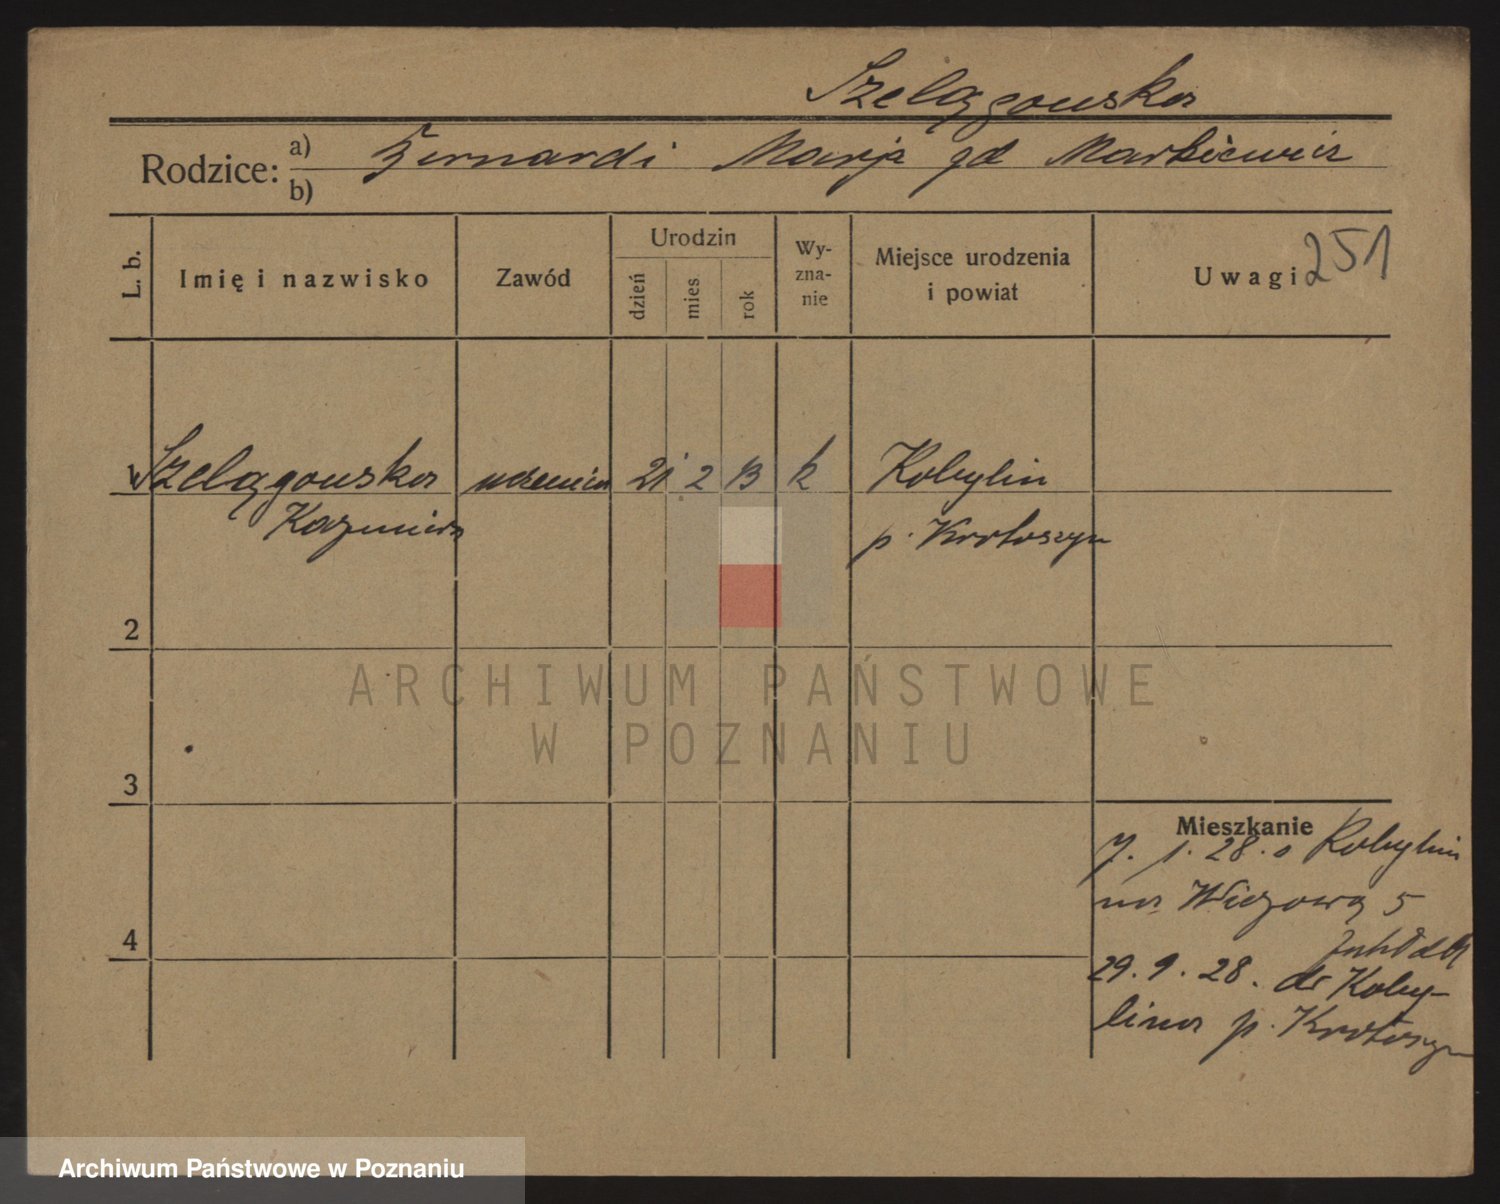 Szelągowska
Rodzice:
a) Bernard i Marja zd Markiewicz
b)
L. b.
Imię i nazwisko
Zawód
Urodzin
dzień
mies
rok
Wy-
zna-
nie
Miejsce urodzenia
i powiat
Uwagi
251
1 Szelągowska uczenica 21 2 13 k Kobylin
Kazimiera p. Krotoszyn
2
3
4
Mieszkanie
7. 1. 28. o Kobylin
na Wiązową 5
29. 9. 28. do Koby-
lina p. Krotoszyn
ARCHIWUM PAŃSTWOWE
W POZNANIU
Archiwum Państwowe w Poznaniu